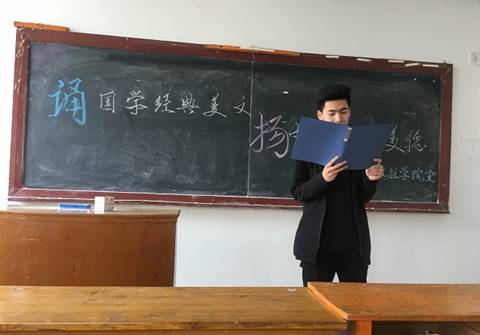 诵国学经典美文
扬 美德
学院堂